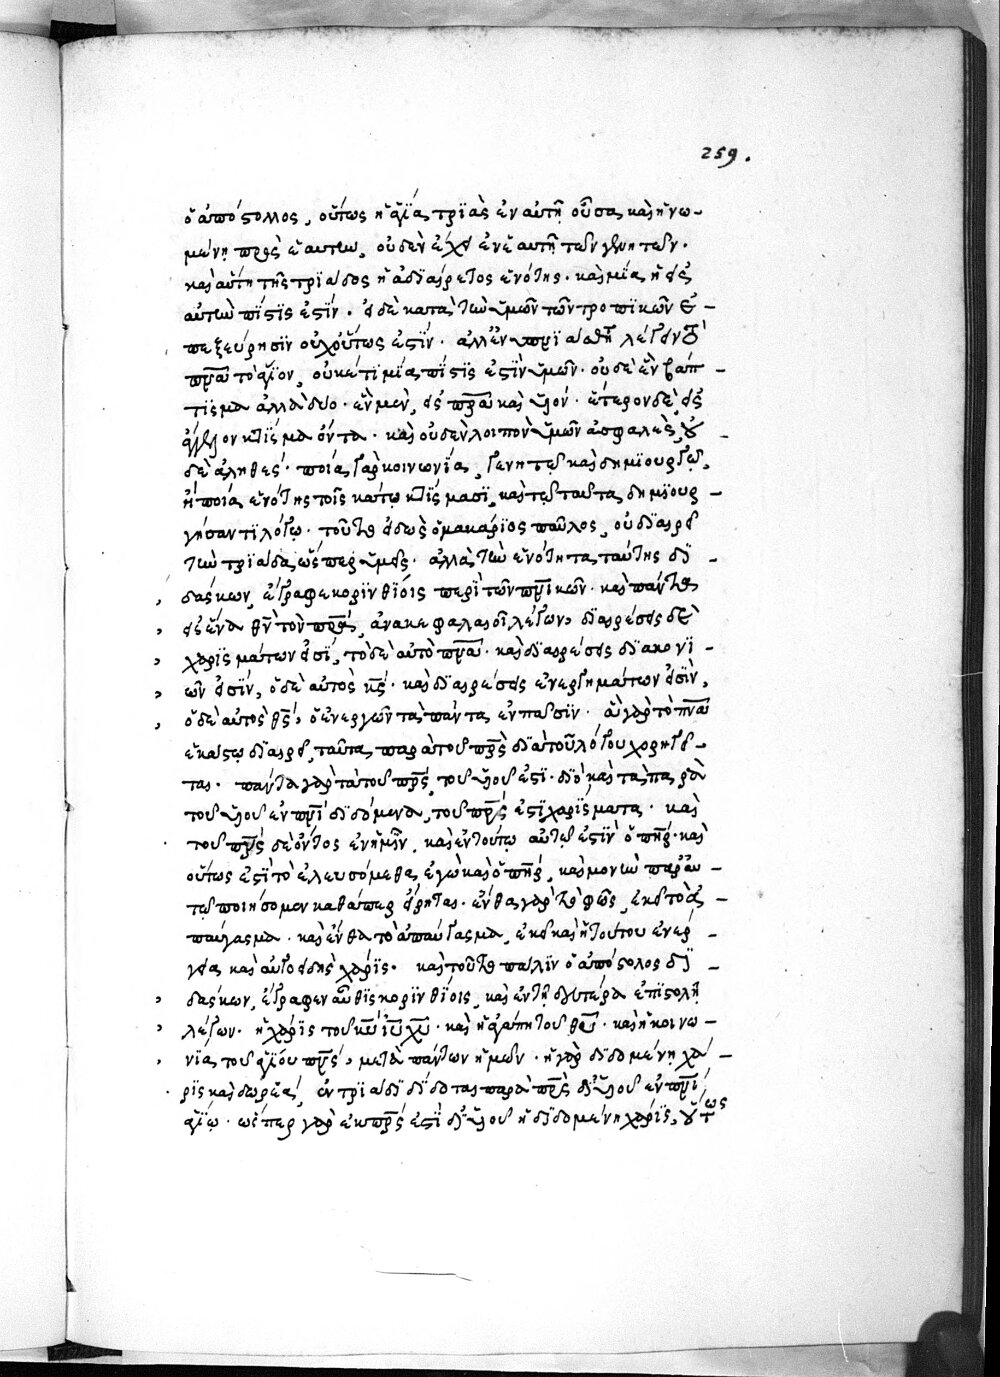 259.
ὁ ἀπόστολλος, οὕτως ἡ ἁγΐα τριὰς ἐν αὐτῇ οὖσα καὶ ἡνω-
μένη πρὸς ἑαυτὴν, οὐδὲν ἔχει ἐν ἑαυτῇ τῶν γενητῶν.
καὶ αὕτη τῆς τριάδος ἡ ἀδιαίρετος ἑνότης. καὶ μία ἡ εἰς
αὐτὴν πίστις ἐστίν. εἰ δὲ κατὰ τὴν ὑμῶν τῶν τροπικῶν ἐ-
πεξεύρησιν οὐχ οὕτως ἐστίν. ἀλλ' ἐνυπνιάσθητε λέγειν τὸ
πνα τὸ ἅγιον, οὐκέτι μία πίστις ἐστὶν ὑμῶν. οὐδὲ ἓν βάπ-
τισμα ἀλλὰ δύο. ἓν μὲν, εἰς πρα καὶ υἱόν. ἕτερον δὲ, εἰς
ἄγγελον κτίσμα ὄντα. καὶ οὐδὲν λοιπὸν ὑμῶν ἀσφαλὲς, οὐ-
δὲ ἀληθές. ποία γὰρ κοινωνία, γενητῷ καὶ δημιουργῷ,
ἢ ποία ἑνότης τοῖς κάτω κτίσμασι, καὶ τῷ ταῦτα δημιουρ-
γήσαντι λόγῳ. τοῦτο εἰδὼς ὁ μακάριος παῦλος, οὐ διαιρεῖ
τὴν τριάδα ὥσπερ ὑμεῖς. ἀλλὰ τὴν ἑνότητα ταύτης δι-
δάσκων, ἔγραφε κορινθίοις περὶ τῶν πνικῶν. καὶ πάντα
εἰς ἕνα θν τὸν πρα, ἀνακεφαλαιοῖ λέγων, διαιρέσεις δὲ
χαρισμάτων εἰσί, τὸ δὲ αὐτὸ πνα. καὶ διαιρέσεις διακονι-
ῶν εἰσίν, ὁ δὲ αὐτὸς κς. καὶ διαιρέσεις ἐνεργημάτων εἰσὶν,
ὁ δὲ αὐτὸς θς, ὁ ἐνεργῶν τὰ πάντα ἐν πᾶσιν. ἃ γὰρ τὸ πνα
ἑκάστῳ διαιρεῖ, ταῦτα παρὰ τοῦ πρς διὰ τοῦ λόγου χορηγεῖ-
ται. πάντα γὰρ τὰ τοῦ πρς, τοῦ υἱοῦ ἐστι. διὸ καὶ τὰ παρὰ
τοῦ υἱοῦ ἐν πνι διδόμενα, τοῦ πρς ἐστι χαρίσματα. καὶ
τοῦ πνς δὲ ὄντος ἐν ἡμῖν, καὶ ἐν τούτῳ αὐτῷ ἐστὶν ὁ πηρ. καὶ
οὕτως ἐστὶ τὸ ἐλευσόμεθα ἐγὼ καὶ ὁ πηρ, καὶ μονὴν παρ' αὐ-
τῷ ποιήσομεν καθάπερ εἴρηται. ἔνθα γὰρ τὸ φῶς, ἐκεῖ τὸ ἀ-
παύγασμα. καὶ ἔνθα τὸ ἀπαύγασμα, ἐκεῖ καὶ ἡ τούτου ἐνέρ-
γεια καὶ αὐγοειδὴς χάρις. καὶ τοῦτο πάλιν ὁ ἀπόστολος δι-
δάσκων, ἔγραφεν αὖθις κορινθίοις, καὶ ἐν τῇ δευτέρα ἐπιστολῇ
λέγων. ἡ χάρις τοῦ κυ ιυ χυ. καὶ ἡ ἀγάπη τοῦ θυ. καὶ ἡ κοινω-
νία τοῦ ἁγίου πνς, μετὰ πάντων ἡμῶν. ἡ γὰρ διδομένη χά-
ρις καὶ δωρεὰ, ἐν τριάδι δίδοται παρὰ πρς δι' υἱοῦ ἐν πνι
ἁγίῳ. ὥσπερ γὰρ ἐκ πρς ἐστὶ δι' υἱοῦ ἡ διδομένη χάρις, οὕτως